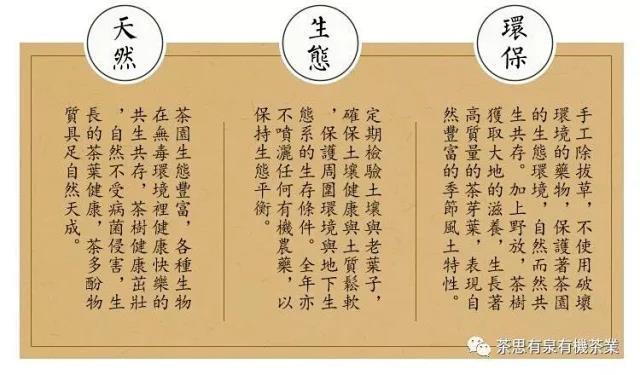 環保
手工除拔草，不使用破壞
環境的藥物，保護著茶園
的生態環境，自然而然共
生共存。加上野放，茶樹
獲取大地的滋養，生長著
高質量的茶芽葉，表現自
然豐富的季節風土特性。
生態
定期檢驗土壤與老葉子，
確保土壤健康與土質鬆軟
，保護周圍環境與地下生
態系的生存條件。全年亦
不噴灑任何有機農藥，以
保持生態平衡。
天然
茶園生態豐富，各種生物
在無毒環境裡健康快樂的
共生共存，茶樹健康茁壯
，自然不受病菌侵害，生
長的茶葉健康，茶多酚物
質具足自然天成。
茶思有泉有機茶業